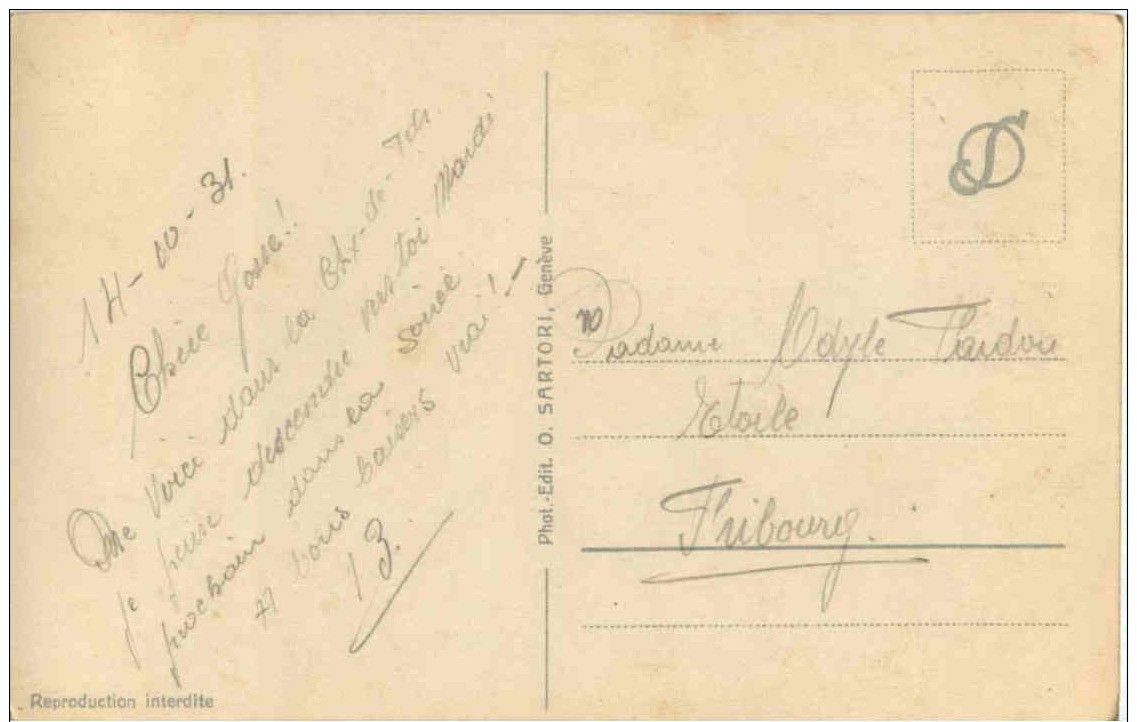 14-10-31.
Chère Gosse!!
Me voici dans la Chx-de-Fds.
je pense descendre vers toi Mardi
prochain dans la soirée
bons baisers vrai!-
13.
Reproduction interdite
Phot.-Edit. O. SARTORI, Genève
Madame Odyle
Etoile
Fribourg.